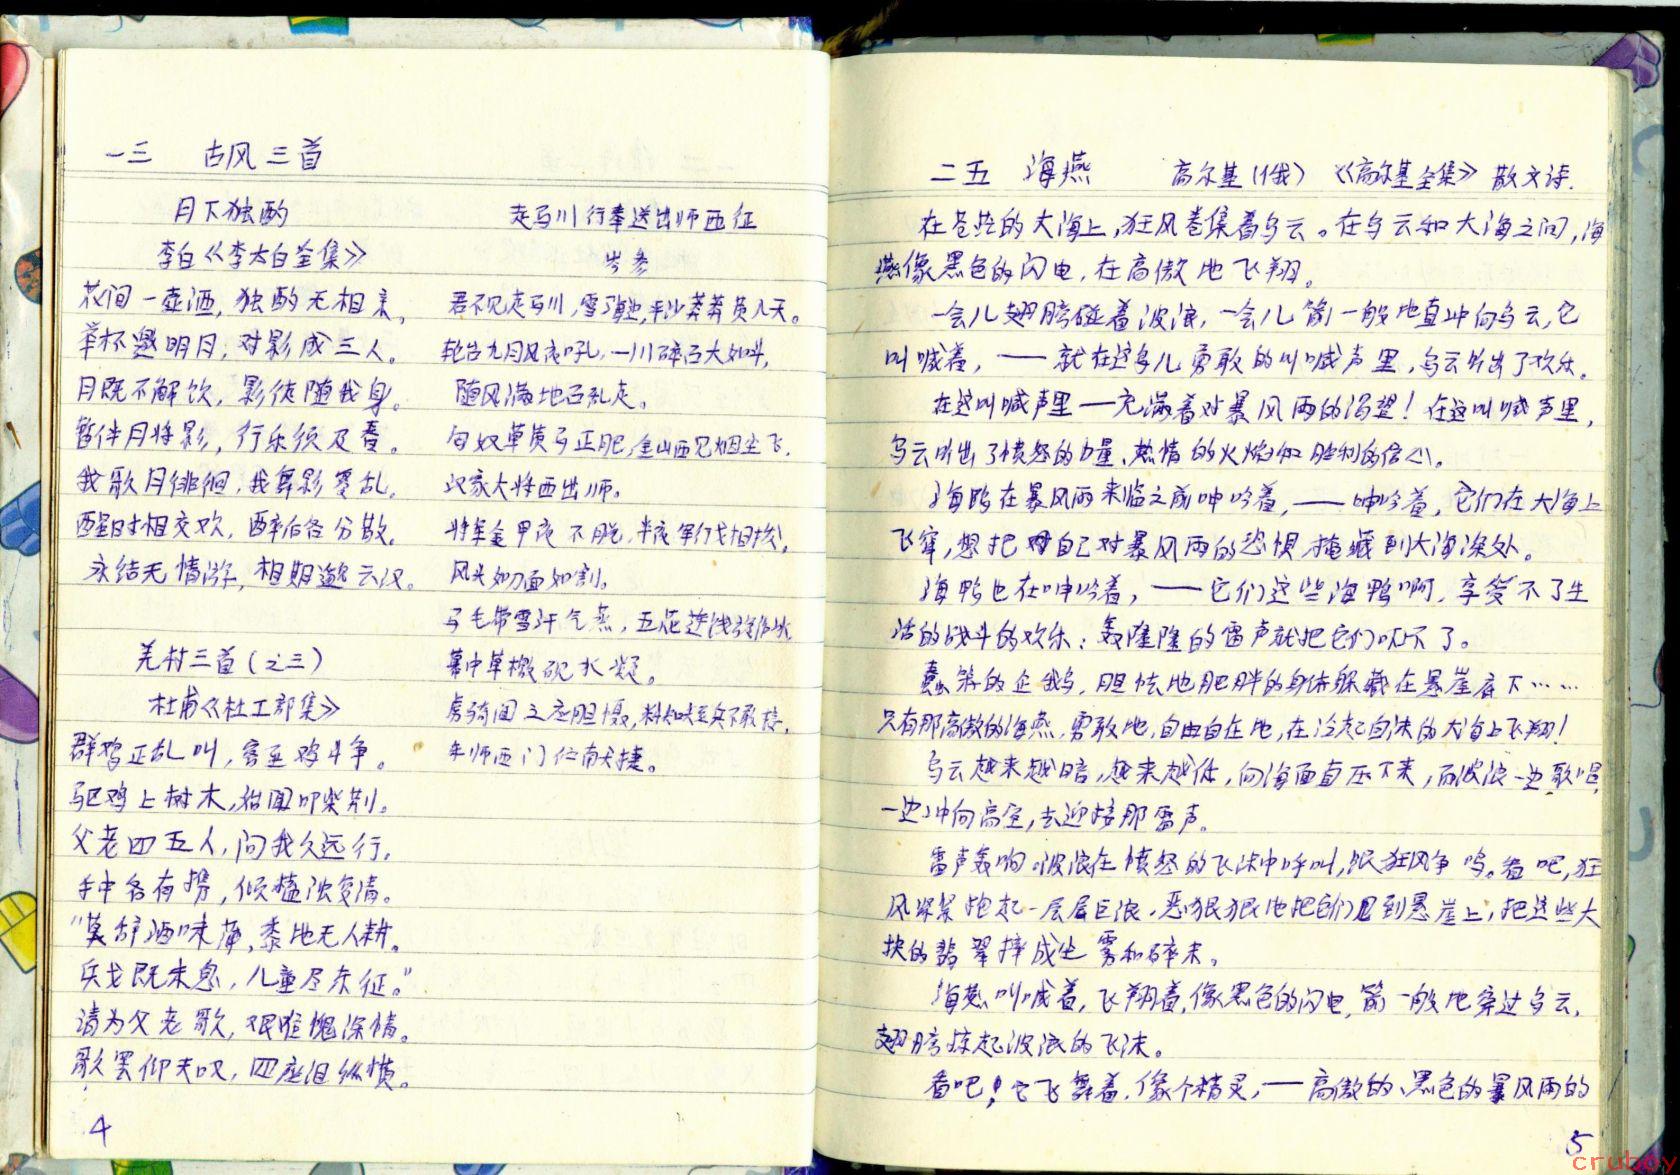 一三 古风三首
月下独酌
李白《李太白全集》
花间一壶酒，独酌无相亲，
举杯邀明月，对影成三人。
月既不解饮，影徒随我身。
暂伴月将影，行乐须及春。
我歌月徘徊，我舞影零乱。
醒时相交欢，醉后各分散。
永结无情游，相期邈云汉。
羌村三首（之三）
杜甫《杜工部集》
群鸡正乱叫，客至鸡斗争。
驱鸡上树木，始闻叩柴荆。
父老四五人，问我久远行。
手中各有携，倾榼浊复清。
“莫辞酒味薄，黍地无人耕。
兵戈既未息，儿童尽东征。”
请为父老歌，艰难愧深情。
歌罢仰天叹，四座泪纵横。
4
走马川行奉送出师西征
岑参
君不见走马川，雪海边，平沙莽莽黄入天。
轮台九月风夜吼，一川碎石大如斗，
随风满地石乱走。
匈奴草黄马正肥，金山西见烟尘飞，
汉家大将西出师。
将军金甲夜不脱，半夜军行戈相拨，
风头如刀面如割。
马毛带雪汗气蒸，五花连钱旋作冰，
幕中草檄砚水凝。
虏骑闻之应胆慑，料知短兵不敢接，
车师西门伫南天捷。
二五 海燕 高尔基（俄）《高尔基全集》 散文诗.
在苍茫的大海上，狂风卷集着乌云。在乌云和大海之间，海
燕像黑色的闪电，在高傲地飞翔。
一会儿翅膀碰着波浪，一会儿箭一般地直冲向乌云，它
叫喊着，——就在这鸟儿勇敢的叫喊声里，乌云听出了欢乐。
在这叫喊声里—充满着对暴风雨的渴望！在这叫喊声里，
乌云听出了愤怒的力量、热情的火焰和胜利的信心。
海鸥在暴风雨来临之前呻吟着，——呻吟着，它们在大海上
飞窜，想把自己对暴风雨的恐惧，掩藏到大海深处。
海鸭也在呻吟着，——它们这些海鸭啊，享受不了生
活的战斗的欢乐：轰隆隆的雷声就把它们吓坏了。
蠢笨的企鹅，胆怯地把肥胖的身体躲藏在悬崖底下……
只有那高傲的海燕，勇敢地，自由自在地，在泛起白沫的大海上飞翔！
乌云越来越暗，越来越低，向海面直压下来，而波浪一边歌唱，
一边冲向高空，去迎接那雷声。
雷声轰响。波浪在愤怒的飞沫中呼叫，跟狂风争鸣。看吧，狂
风紧紧抱起一层层巨浪，恶狠狠地把它们甩到悬崖上，把这些大
块的翡翠摔成尘雾和碎末。
海燕叫喊着，飞翔着，像黑色的闪电，箭一般地穿过乌云，
翅膀掠起波浪的飞沫。
看吧！它飞舞着，像个精灵，——高傲的、黑色的暴风雨的
5
cruboy